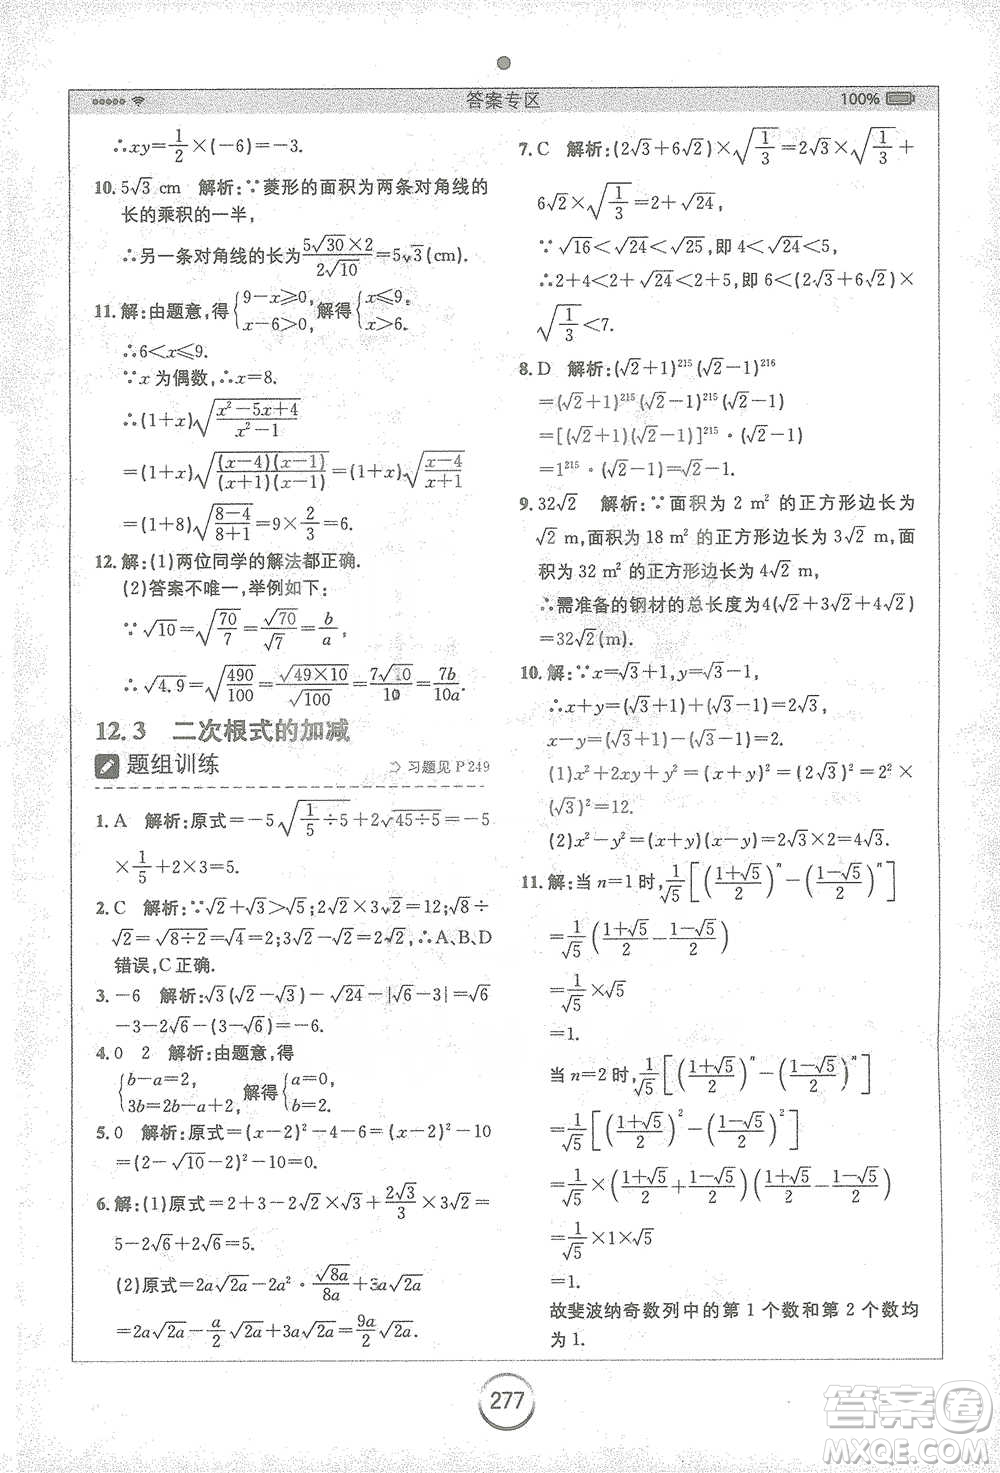 答案专区
100%
∴xy=1/2×(-6)=-3.
10. 5√3 cm 解析:∵菱形的面积为两条对角线的
长的乘积的一半,
∴另一条对角线的长为(5√30×2)/(2√10)=5√3(cm).
11. 解:由题意,得{9-x≥0, x-6>0, 解得{x≤9, x>6.
∴6<x≤9.
∵x为偶数,∴x=8.
∴(1+x)√((x²-5x+4)/(x²-1))
=(1+x)√((x-4)(x-1)/((x+1)(x-1)))=(1+x)√((x-4)/(x+1))
=(1+8)√((8-4)/(8+1))=9×2/3=6.
12. 解:(1)两位同学的解法都正确.
(2)答案不唯一,举例如下:
∵√10=√(70/7)=√70/√7=b/a,
∴√4.9=√(490/100)=√(49×10)/√100=7√10/10=7b/10a.
12.3 二次根式的加减
题组训练 习题见P249
1. A 解析:原式=-5√(1/5÷5)+2√(45÷5)=-5
×1/5+2×3=5.
2. C 解析:∵√2+√3>√5;2√2×3√2=12;√8÷
√2=√(8÷2)=√4=2;3√2-√2=2√2,∴A、B、D
错误,C正确.
3. -6 解析:√3(√2-√3)-√24-|√6-3|=√6
-3-2√6-(3-√6)=-6.
4. 0 2 解析:由题意,得
{b-a=2, 3b=2b-a+2, 解得{a=0, b=2.
5. 0 解析:原式=(x-2)²-4-6=(x-2)²-10
=(2-√10-2)²-10=0.
6. 解:(1)原式=2+3-2√2×√3+(2√3)/3×3√2=
5-2√6+2√6=5.
(2)原式=2a√2a-2a²·√8a/8a+3a√2a
=2a√2a-a/2√2a+3a√2a=9a/2√2a.
7. C 解析:(2√3+6√2)×√(1/3)=2√3×√(1/3)+
6√2×√(1/3)=2+√24,
∵√16<√24<√25,即4<√24<5,
∴2+4<2+√24<2+5,即6<(2√3+6√2)×
√(1/3)<7.
8. D 解析:(√2+1)²¹⁵(√2-1)²¹⁶
=(√2+1)²¹⁵(√2-1)²¹⁵(√2-1)
=[(√2+1)(√2-1)]²¹⁵·(√2-1)
=1²¹⁵·(√2-1)=√2-1.
9. 32√2 解析:∵面积为2 m²的正方形边长为
√2 m,面积为18 m²的正方形边长为3√2 m,面
积为32 m²的正方形边长为4√2 m,
∴需准备的钢材的总长度为4(√2+3√2+4√2)
=32√2(m).
10. 解:∵x=√3+1,y=√3-1,
∴x+y=(√3+1)+(√3-1)=2√3,
x-y=(√3+1)-(√3-1)=2.
(1)x²+2xy+y²=(x+y)²=(2√3)²=2²×
(√3)²=12.
(2)x²-y²=(x+y)(x-y)=2√3×2=4√3.
11. 解:当n=1时,1/√5[((1+√5)/2)ⁿ-((1-√5)/2)ⁿ]
=1/√5((1+√5)/2-(1-√5)/2)
=1/√5×√5
=1.
当n=2时,1/√5[((1+√5)/2)ⁿ-((1-√5)/2)ⁿ]
=1/√5[((1+√5)/2)²-((1-√5)/2)²]
=1/√5×((1+√5)/2+(1-√5)/2)((1+√5)/2-(1-√5)/2)
=1/√5×1×√5
=1.
故斐波纳奇数列中的第1个数和第2个数均
为1.
277
答案卷
MXQE.COM